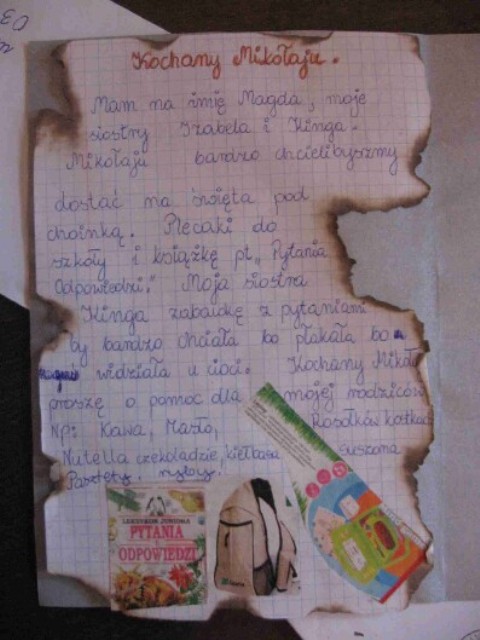 Kochany Mikołaju.
Mam na imię Magda, moje
siostry Izabela i Kinga.
Mikołaju bardzo chcielibyszmy
dostać na święta pod
choinką. Plecaki do
szkoły i książkę pt„ Pytania
Odpowiedzi." Moja siostra
Kinga zabawkę z pytaniami
by bardzo chciała bo płakała bo
widziała u cioci. Kochany Mikoł
proszę o pomoc dla mojej rodziców
Np: Kawa, Masło, Rosołków kostkach
Nutella czekoladzie, kiełbasa suszona
Pasztety.
PYTANIA
I
ODPOWIEDZI